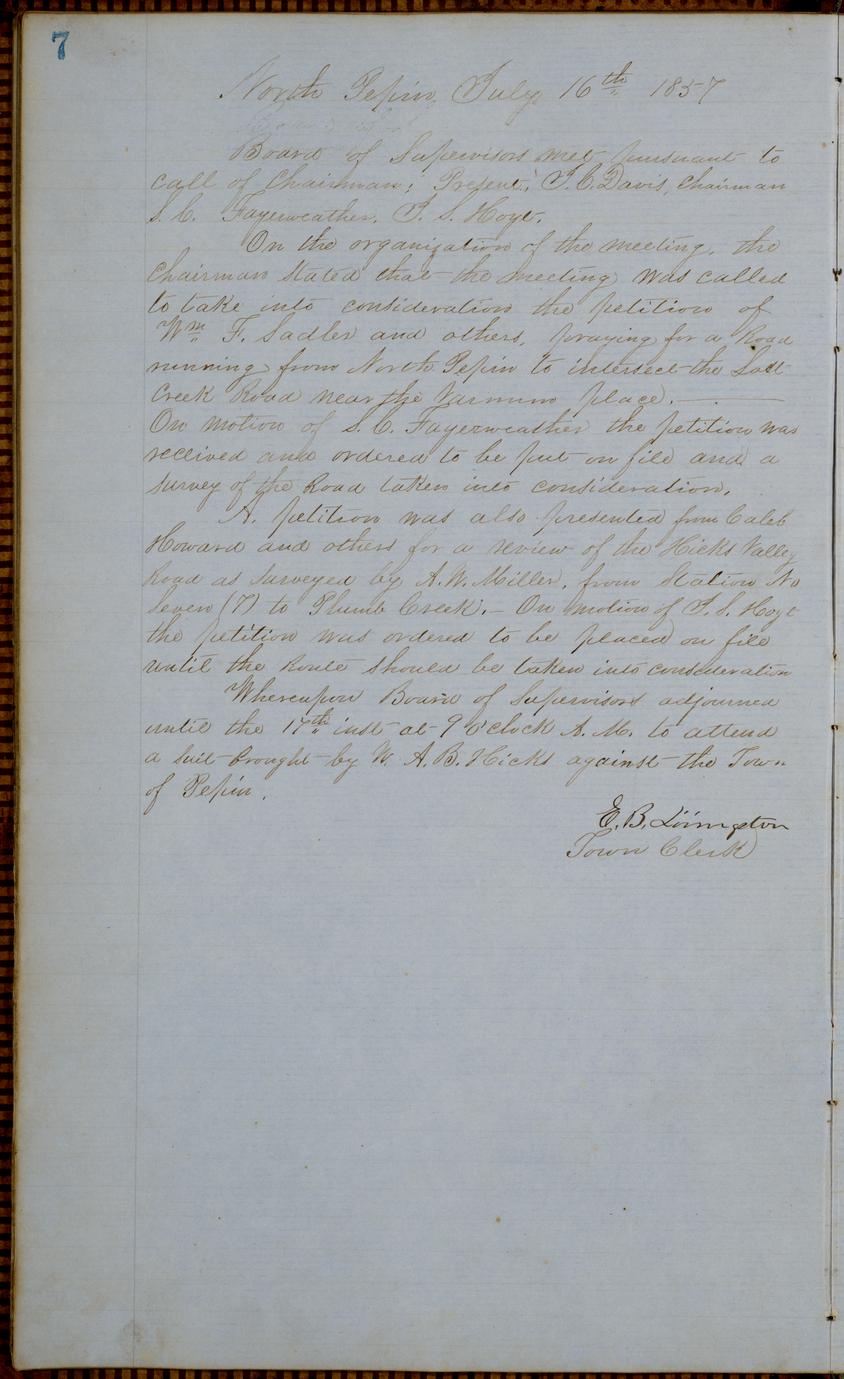 7
North Pepin, July 16th 1857
Board of Supervisors met pursuant to
call of Chairman; Present, Davis, Chairman
S. C. Fayerweather, Hoyt.
On the organization of the meeting, the
Chairman stated that the meeting was called
to take into consideration the petition of
Wm F. Sadler and others, praying for a Road
running from North Pepin to intersect the
Creek Road near the place.
On motion of S. C. Fayerweather the petition was
received and ordered to be put on file and a
survey of the Road taken into consideration.
A petition was also presented from Caleb
Howard and others for a review of the Hicks Valley
Road as surveyed by A. W. Miller, from Station No
Seven (7) to Plumb Creek. — On motion of Hoyt
the petition was ordered to be placed on file
until the Route should be taken into consideration
Whereupon Board of Supervisors adjourned
until the 17th inst at 9 o'clock A. M. to attend
a suit brought by W. A. B. Hicks against the Town
of Pepin.
E. B.
Town Clerk